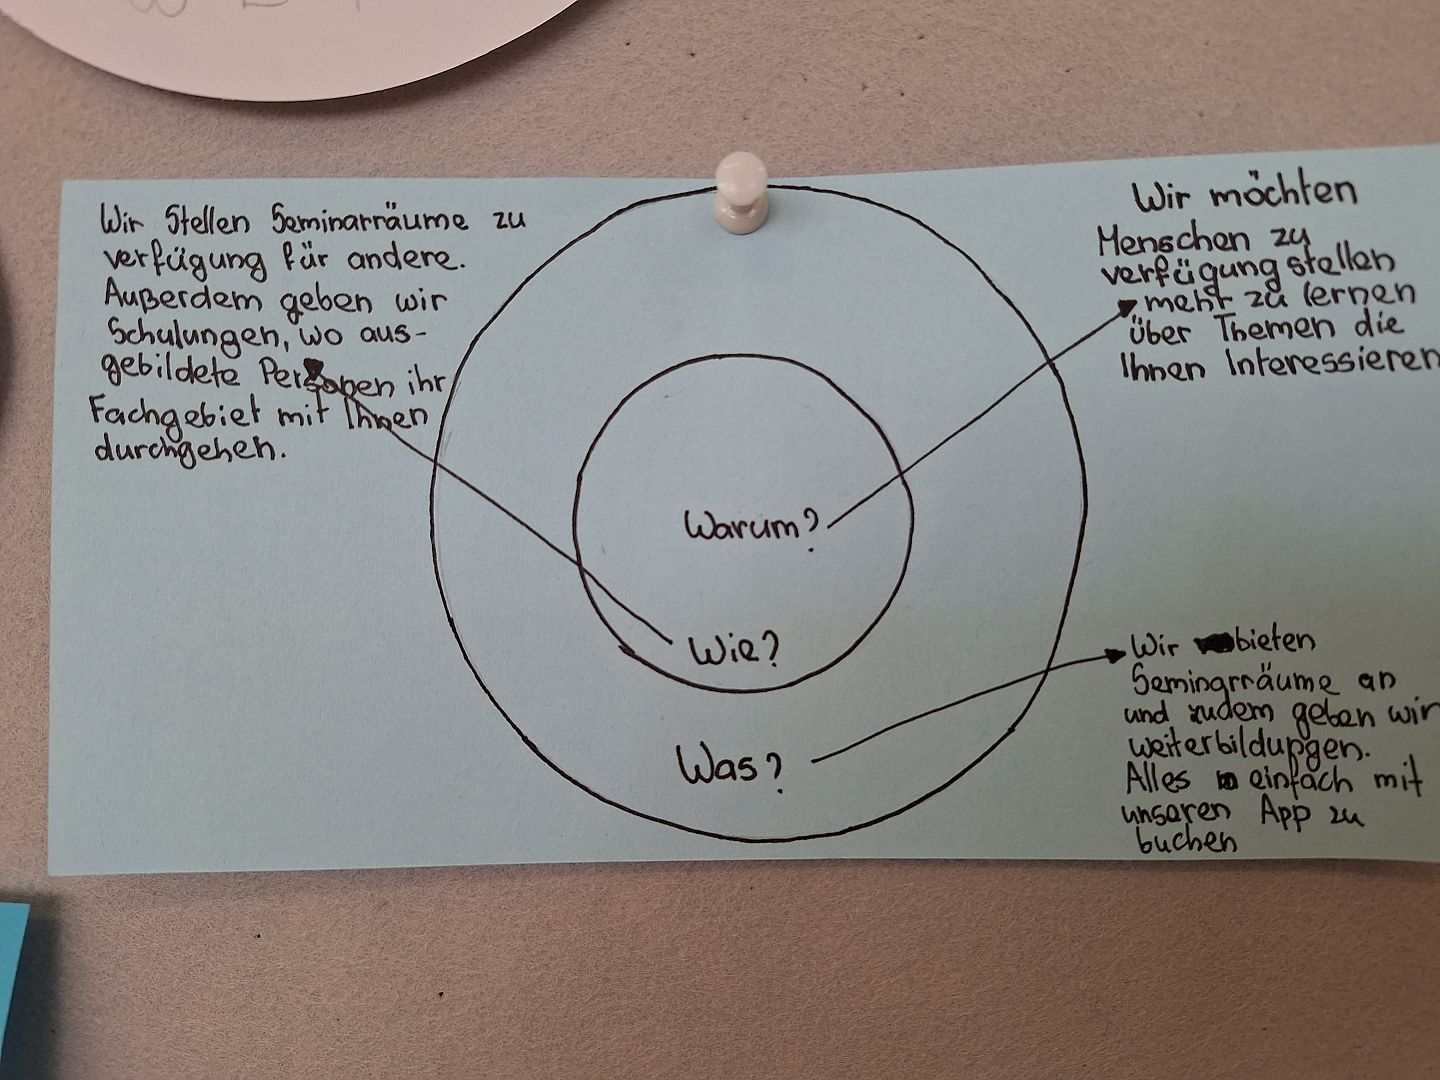 Wir Stellen Seminarräume zu
verfügung für andere.
Außerdem geben wir
Schulungen, wo aus-
gebildete Personen ihr
Fachgebiet mit Ihnen
durchgehen.
Wir möchten
Menschen zu
verfügung stellen
mehr zu lernen
über Themen die
Ihnen Interessieren
Warum?
Wie?
Was?
Wir bieten
Seminarräume an
und zudem geben wir
weiterbildungen.
Alles einfach mit
unseren App zu
buchen